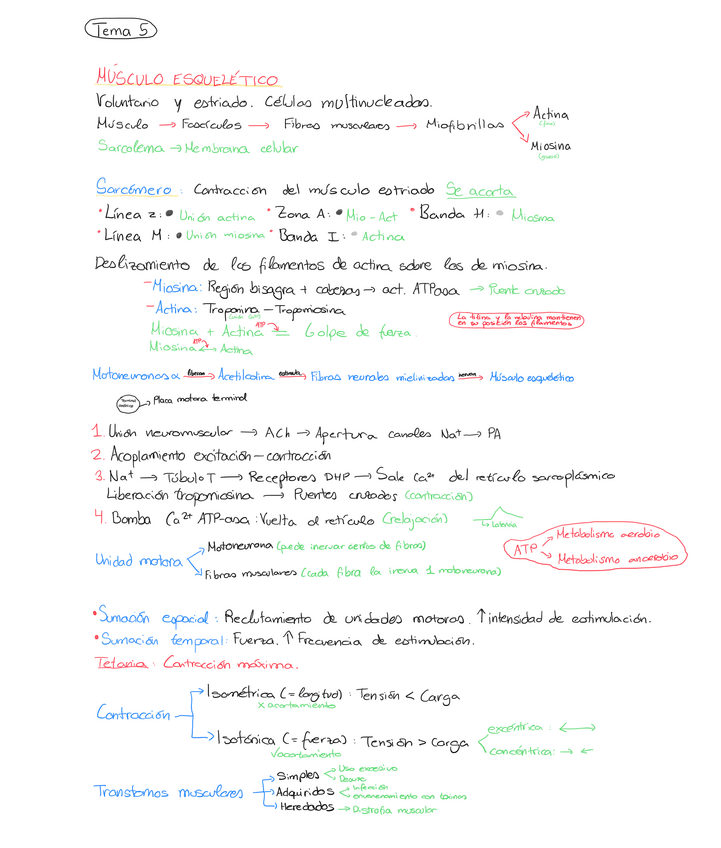 Tema 5
MÚSCULO ESQUELÉTICO
Voluntario y estriado. Células multinucleadas.
Músculo → Fascículos → Fibras musculares → Miofibrillas
Actina
(fina)
Miosina
(gruesa)
Sarcolema → Membrana celular
Sarcómero: Contracción del músculo estriado Se acorta
• Línea z: • Unión actina • Zona A: • Mio-Act • Banda H: • Miosina
• Línea M: • Unión miosina • Banda I: • Actina
Deslizamiento de los filamentos de actina sobre los de miosina.
- Miosina: Región bisagra + cabezas → act. ATPasa → Puente cruzado
- Actina: Troponina - Tropomiosina
La titina y la nebulina mantienen
en su posición los filamentos
Miosina + Actina ATP = Golpe de fuerza
Miosina ATP Actina
Motoneuronas α liberan → Acetilcolina estimula → Fibras neurales mielinizadas inervan → Músculo esquelético
Terminal → Placa motora terminal
1. Unión neuromuscular → ACh → Apertura canales Na⁺ → PA
2. Acoplamiento excitación-contracción
3. Na⁺ → Túbulo T → Receptores DHP → Sale Ca²⁺ del retículo sarcoplásmico
Liberación tropomiosina → Puentes cruzados (contracción)
4. Bomba Ca²⁺ ATP-asa: Vuelta al retículo (relajación)
↳ Latencia
ATP
Metabolismo aerobio
Metabolismo anaerobio
Unidad motora
Motoneurona (puede inervar cientos de fibras)
Fibras musculares (cada fibra la inerva 1 motoneurona)
• Sumación espacial: Reclutamiento de unidades motoras. ↑ intensidad de estimulación.
• Sumación temporal: Fuerza. ↑ Frecuencia de estimulación.
Tetania: Contracción máxima.
Contracción
Isométrica (= longitud): Tensión < Carga
X acortamiento
Isotónica (= fuerza): Tensión > Carga
√acortamiento
excéntrica: ←→
concéntrica: → ←
Transtornos musculares
Simples
Uso excesivo
Desuso
Adquiridos
Infección
envenenamiento con toxinas
Heredados → Distrofia muscular